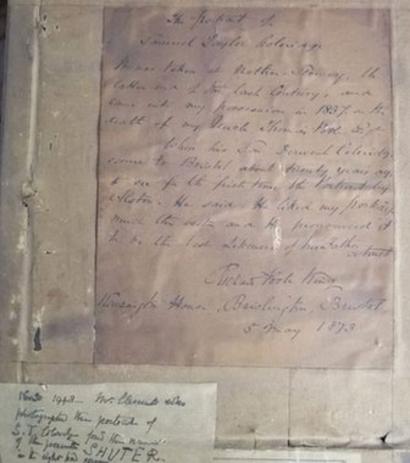 The portrait of
Samuel Taylor Coleridge
was taken at Nether Stowey, the
latter end of the last Century, and
came into my possession in 1837 on the
death of my Uncle Thomas Poole Esqre
When his Son Derwent Coleridge
came to Bristol about twenty years ago
to see for the first time the Portrait by
Allston. He said He liked my Portrait
much the better and He pronounced it
to be the best likeness of his Father
extant
Richard Poole King
Kensington House, Brislington, Bristol
5 May 1873
1948 - Mr. Clements who
photographed this portrait of
S.T. Coleridge found the name
of the
SHUTER
on the right hand